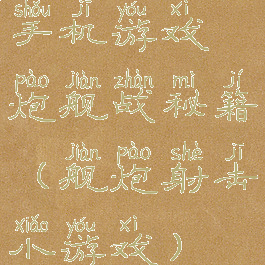 shǒu jī yóu xì
手机游戏
pào jiàn zhàn mì jí
炮舰战秘籍
jiàn pào shè jī
（舰炮射击
xiǎo yóu xì
小游戏）